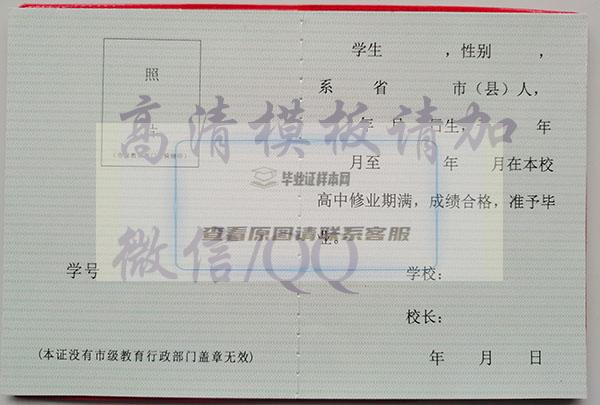 照
学生　　　，性别　　，
系　　省　　　市（县）人，
年　月　　日生，　　　年
月至　　　年　　月在本校
高中修业期满，成绩合格，准予毕
业。
学号
学校：
校长：
(本证没有市级教育行政部门盖章无效)
年　月　日
高清模板请加
微信/QQ
毕业证样本网
查看原图请联系客服